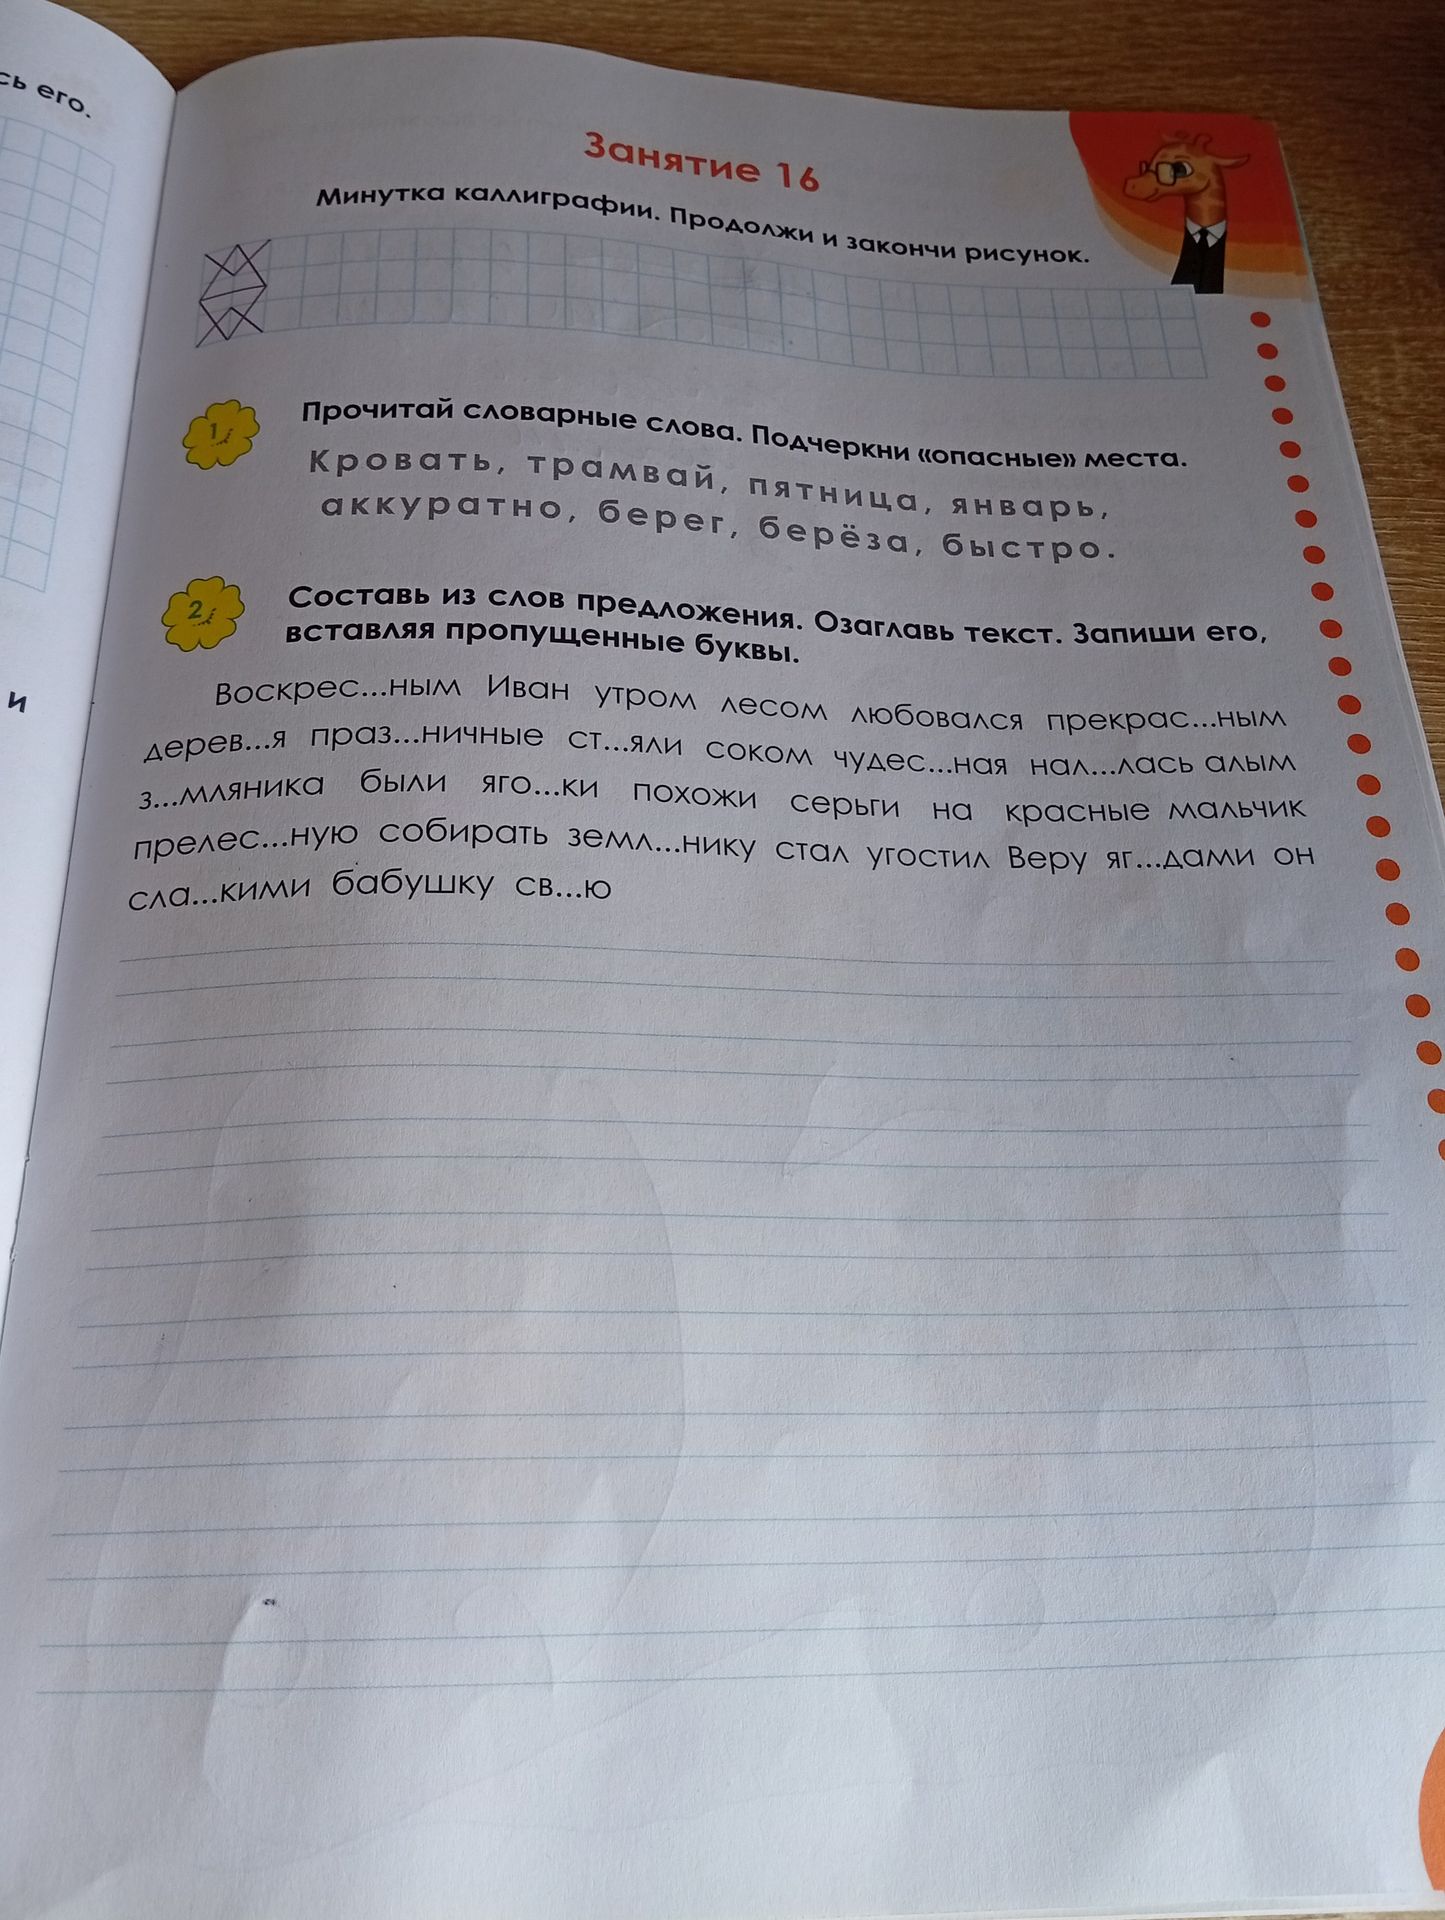 сь его.
и
Занятие 16
Минутка каллиграфии. Продолжи и закончи рисунок.
1
Прочитай словарные слова. Подчеркни «опасные» места.
Кровать, трамвай, пятница, январь,
аккуратно, берег, берёза, быстро.
2
Составь из слов предложения. Озаглавь текст. Запиши его,
вставляя пропущенные буквы.
Воскрес...ным Иван утром лесом любовался прекрас...ным
дерев...я праз...ничные ст...яли соком чудес...ная нал...лась алым
з...мляника были яго...ки похожи серьги на красные мальчик
прелес...ную собирать земл...нику стал угостил Веру яг...дами он
сла...кими бабушку св...ю